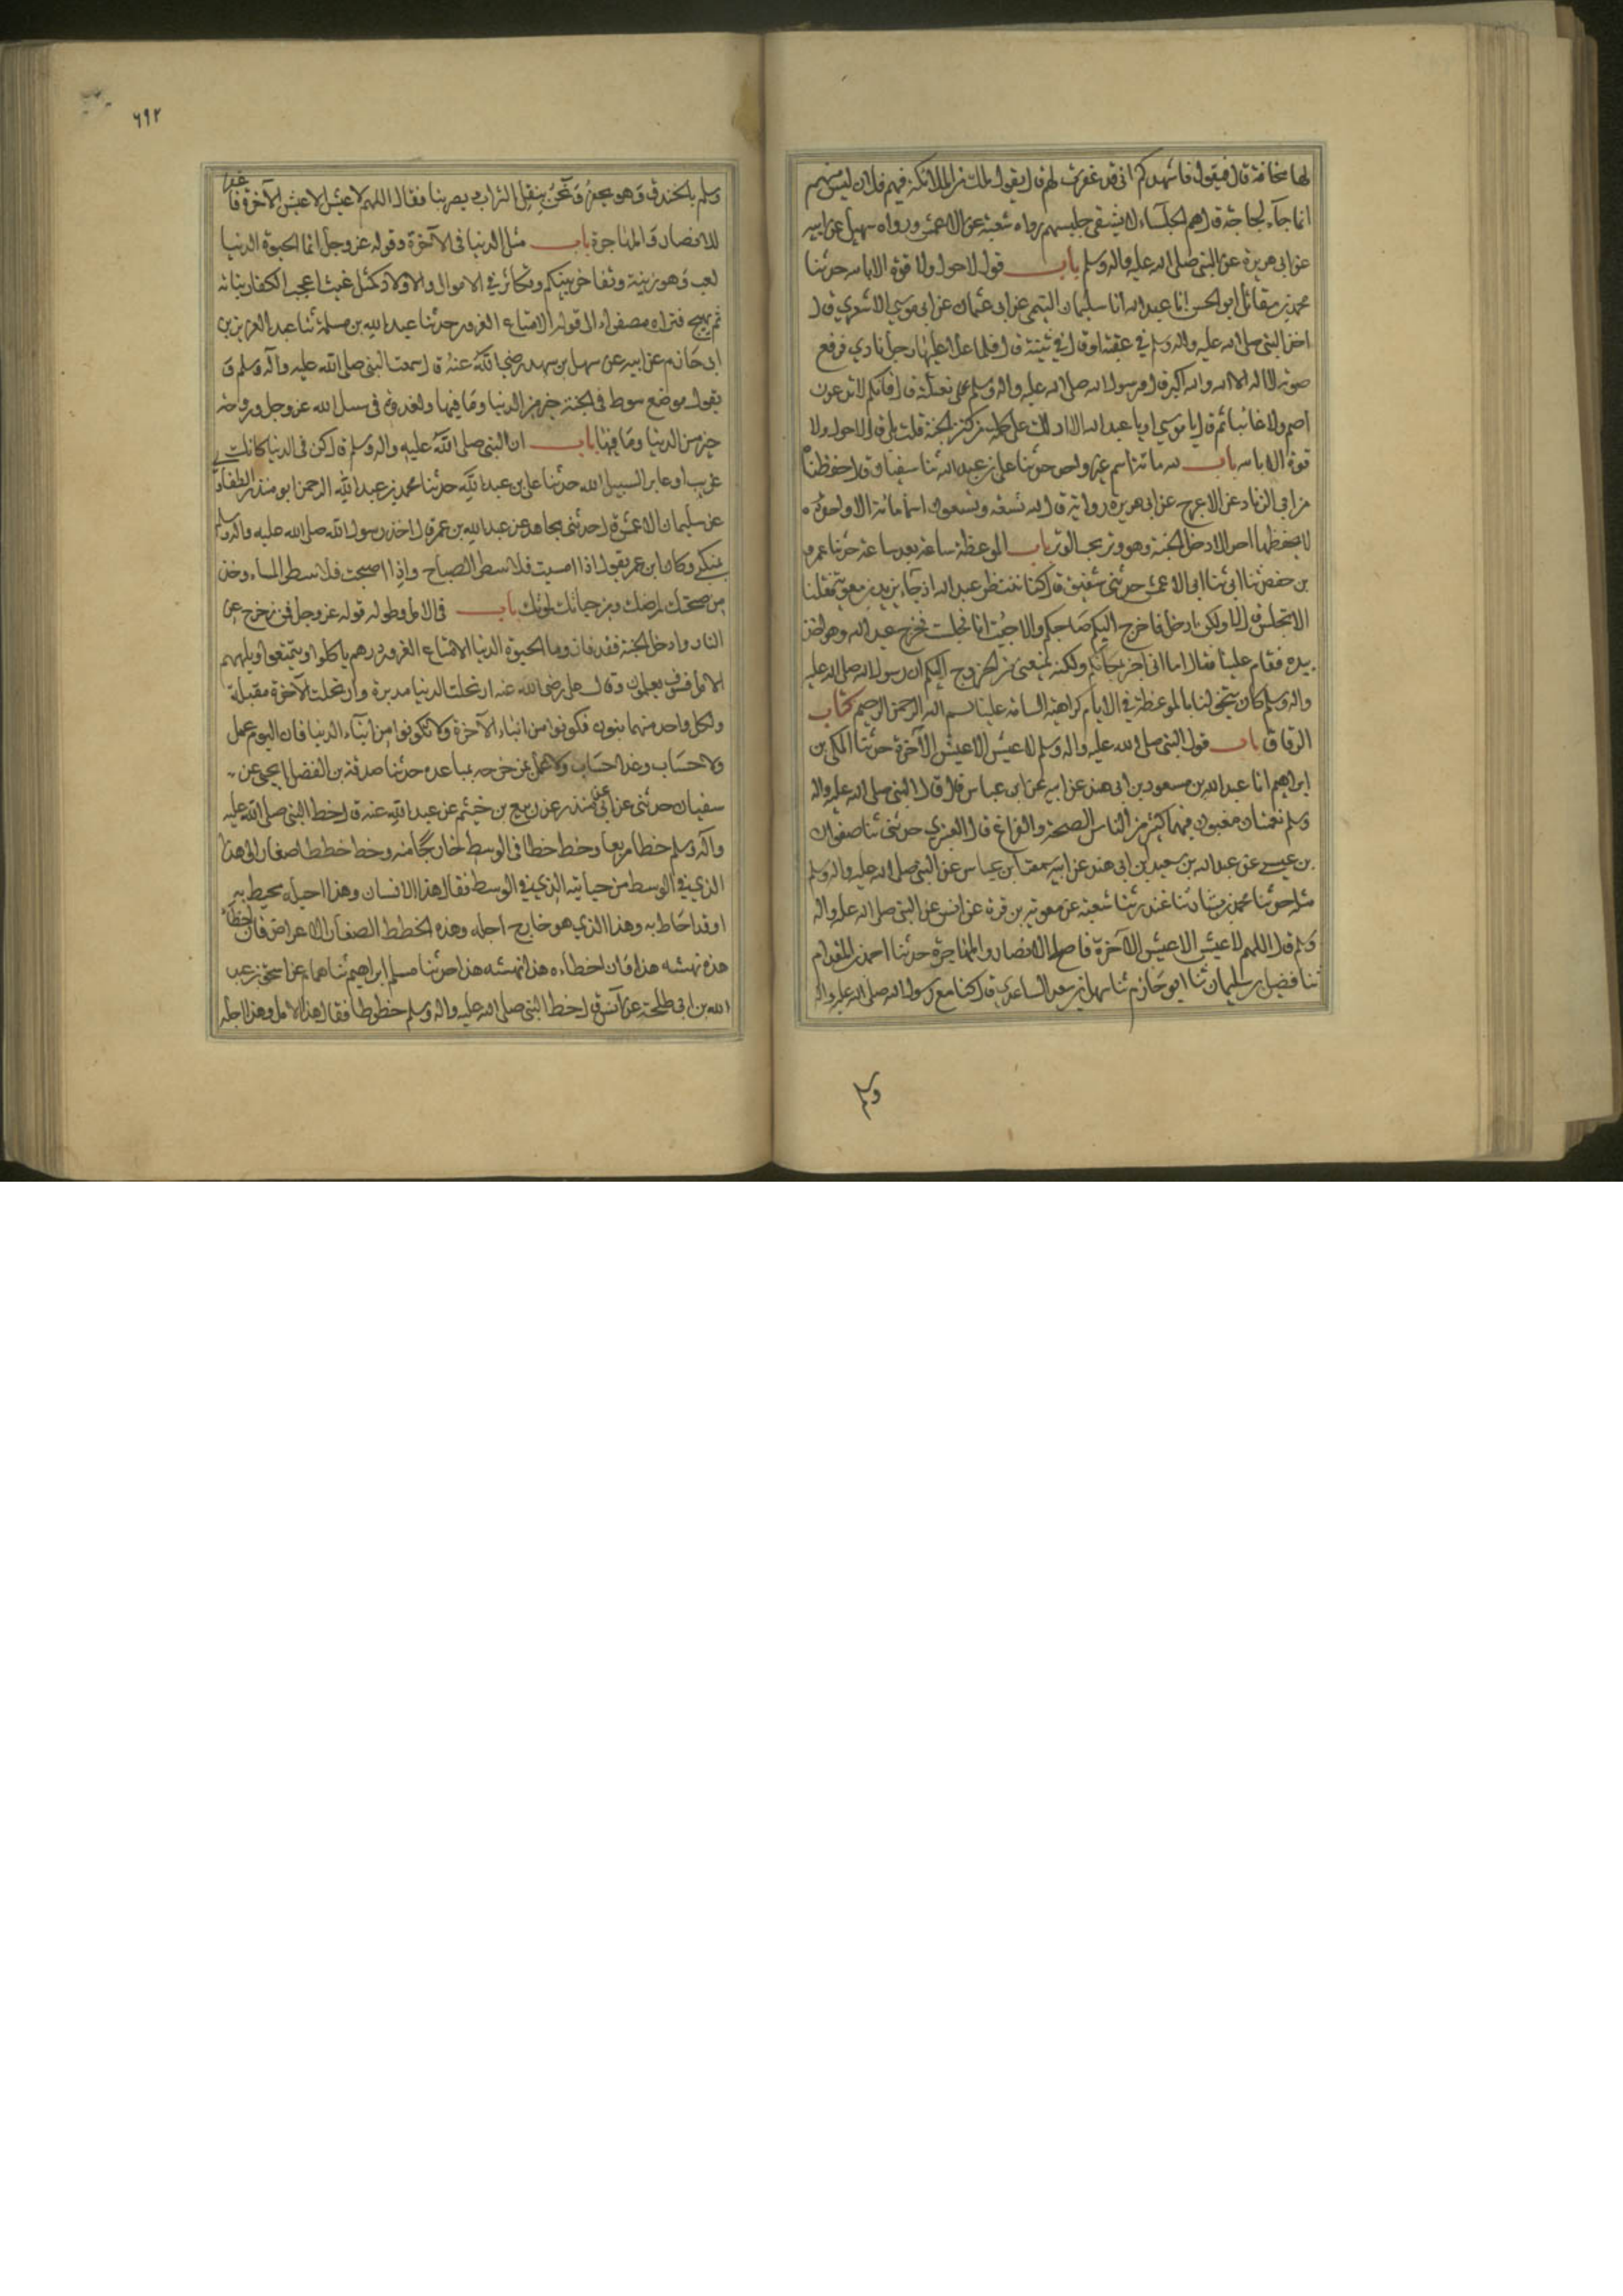 لها مخافة قال فيقول فاشهدكم انى قد غفرت لهم قال يقول ملك من الملائكة فيهم فلان ليس منهم
انما جآء لحاجة قال هم الجلسآء لا يشقى جليسهم رواه شعبة عن الاعمش ورواه سهيل عن ابيه
عن ابى هريرة عن النبى صلى الله عليه واله وسلم باب قول لا حول ولا قوة الا بالله حدثنا
محمد بن مقاتل ابو الحسن انا عبد الله انا سليمان التيمى عن ابى عثمان عن ابى موسي الاشعري قال
اخذ النبى صلى الله عليه واله وسلم في عقبة او قال في ثنية قال فلما علا عليها رجل نادي فرفع
صوته لا اله الا الله والله اكبر قال ورسول الله صلى الله عليه واله وسلم على بغلته قال فانكم لا تدعون
اصم ولا غائبا ثم قال يا موسي او يا عبد الله الا ادلك على كلمة من كنز الجنة قلت بلى قال لا حول ولا
قوة الا بالله باب لله مائة اسم غير واحد حدثنا على بن عبد الله ثنا سفيان قال حفظناه
من ابى الزناد عن الاعرج عن ابى هريرة رواية قال لله تسعة وتسعون اسما مائة الا واحدة
لا يحفظها احد الا دخل الجنة وهو وتر يحب الوتر باب الموعظة ساعة بعد ساعة حدثنا عمر
بن حفص ثنا ابى ثنا الاعمش حدثنى شقيق قال كنا ننتظر عبد الله اذ جآء يزيد بن معوية فقلنا
الا تجلس قال لا ولكن ادخل فاخرج اليكم صاحبكم والا جئت انا فجلست فخرج عبد الله وهو اخذ
بيده فقام علينا فقال اما انى اخبر بمكانكم ولكنه يمنعنى من الخروج اليكم ان رسول الله صلى الله عليه
واله وسلم كان يتخولنا بالموعظة في الايام كراهية السامة علينا بسم الله الرحمن الرحيم كتاب
الرقاق باب قول النبى صلى الله عليه واله وسلم لا عيش الا عيش الآخرة حدثنا المكى بن
ابراهيم انا عبد الله بن مسعود بن ابى هند عن ابيه عن ابن عباس قال قال النبى صلى الله عليه واله
وسلم نعمتان مغبون فيهما كثير من الناس الصحة والفراغ قال العنبري حدثنى ثنا صفوان
بن عيسي عن عبد الله بن سعيد بن ابى هند عن ابيه سمعت ابن عباس عن النبى صلى الله عليه واله وسلم
مثله حدثنا محمد بن بشار ثنا غندر ثنا شعبة عن معوية بن قرة عن انس عن النبى صلى الله عليه واله
وسلم قال اللهم لا عيش الا عيش الآخرة فاصلح الانصار والمهاجرة حدثنا احمد بن المقدام
ثنا فضيل بن سليمان ثنا ابو حازم ثنا سهل بن سعد الساعدي قال كنا مع رسول الله صلى الله عليه واله
وسلم
٦٩٢
وسلم بالخندق وهو يحفر ونحن ينقل التراب بصر بنا فقال اللهم لا عيش الا عيش الآخرة فا غفر
للانصار والمهاجرة باب مثل الدنيا فى الآخرة وقوله عز وجل انما الحيوة الدنيا
لعب ولهو وزينة وتفاخر بينكم وتكاثر في الاموال والاولاد كمثل غيث اعجب الكفار نباته
ثم يهيج فتراه مصفرا الى قوله الا متاع الغرور حدثنا عبد الله بن مسلمة ثنا عبد العزيز بن
ابى حازم عن ابيه عن سهل بن سهد رضى الله عنه قال سمعت النبى صلى الله عليه وآله وسلم
يقول موضع سوط فى الجنة خير من الدنيا وما فيها ولغدوة فى سبيل الله عز وجل او روحة
خير من الدنيا وما فيها باب ان النبى صلى الله عليه واله وسلم قال كن فى الدنيا كانك
غريب او عابر السبيل الله حدثنا على بن عبد الله حدثنا محمد بن عبد الله الرحمن ابو منذر الطفاوى
عن سليمان الاعمش قال حدثنى مجاهد عن عبد الله بن عمر قال اخذ رسول الله صلى الله عليه واله وسلم
بمنكبي وكان ابن عمر يقول اذا امسيت فلا تنتظر الصباح واذا اصبحت فلا تنتظر المساء وخذ
من صحتك لمرضك ومن حياتك لموتك باب فى الامل وطوله قوله عز وجل فمن زحزح عن
النار وادخل الجنة فقد فاز وما الحيوة الدنيا الا متاع الغرور ذرهم ياكلوا ويتمتعوا ويلههم
الامل فسوف يعلمون وقال على رضى الله عنه ارتحلت الدنيا مدبرة وارتحلت الآخرة مقبلة
ولكل واحد منهما بنون فكونوا من ابناء الآخرة ولا تكونوا من ابنآء الدنيا فان اليوم عمل
ولا حساب وغدا حساب ولا عمل بمزحزحه بمباعده حدثنا صدقة بن الفضل انا يحيى عن
سفيان حدثنى عن ابى منذر عن ربيع بن خيثم عن عبد الله عنه قال خط النبى صلى الله عليه
وآله وسلم خطا مربعا وخط خطا فى الوسط خارجا منه وخط خططا صغارا الى هذا
الذي في الوسط من جانبه الذي في الوسط فقال هذا الانسان وهذا اجله محيط به
او قد احاط به وهذا الذي هو خارج اجله وهذه الخطط الصغار الاعراض فان اخطأه
هذه نهشه هذا فان اخطاءه هذا نهشه هذا حدثنا مسلم ابراهيم ثنا همام عن اسحق بن عبد
الله بن ابى طلحة عن انس قال خط النبى صلى الله عليه واله وسلم خطوطا فقال هذا الامل وهذا اجله